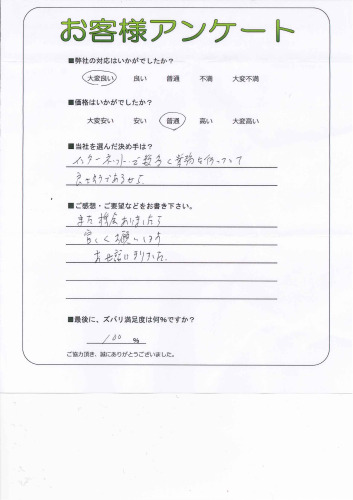 お客様アンケート
■弊社の対応はいかがでしたか?
大変良い 良い 普通 不満 大変不満
■価格はいかがでしたか?
大変安い 安い 普通 高い 大変高い
■当社を選んだ決め手は?
インターネットで数多く業務を行っていて
良さそうであるから
■ご感想・ご要望などをお書き下さい。
また機会ありましたら
宜しくお願いします
お世話になりました
■最後に、ズバリ満足度は何%ですか?
100 %
ご協力頂き、誠にありがとうございました。